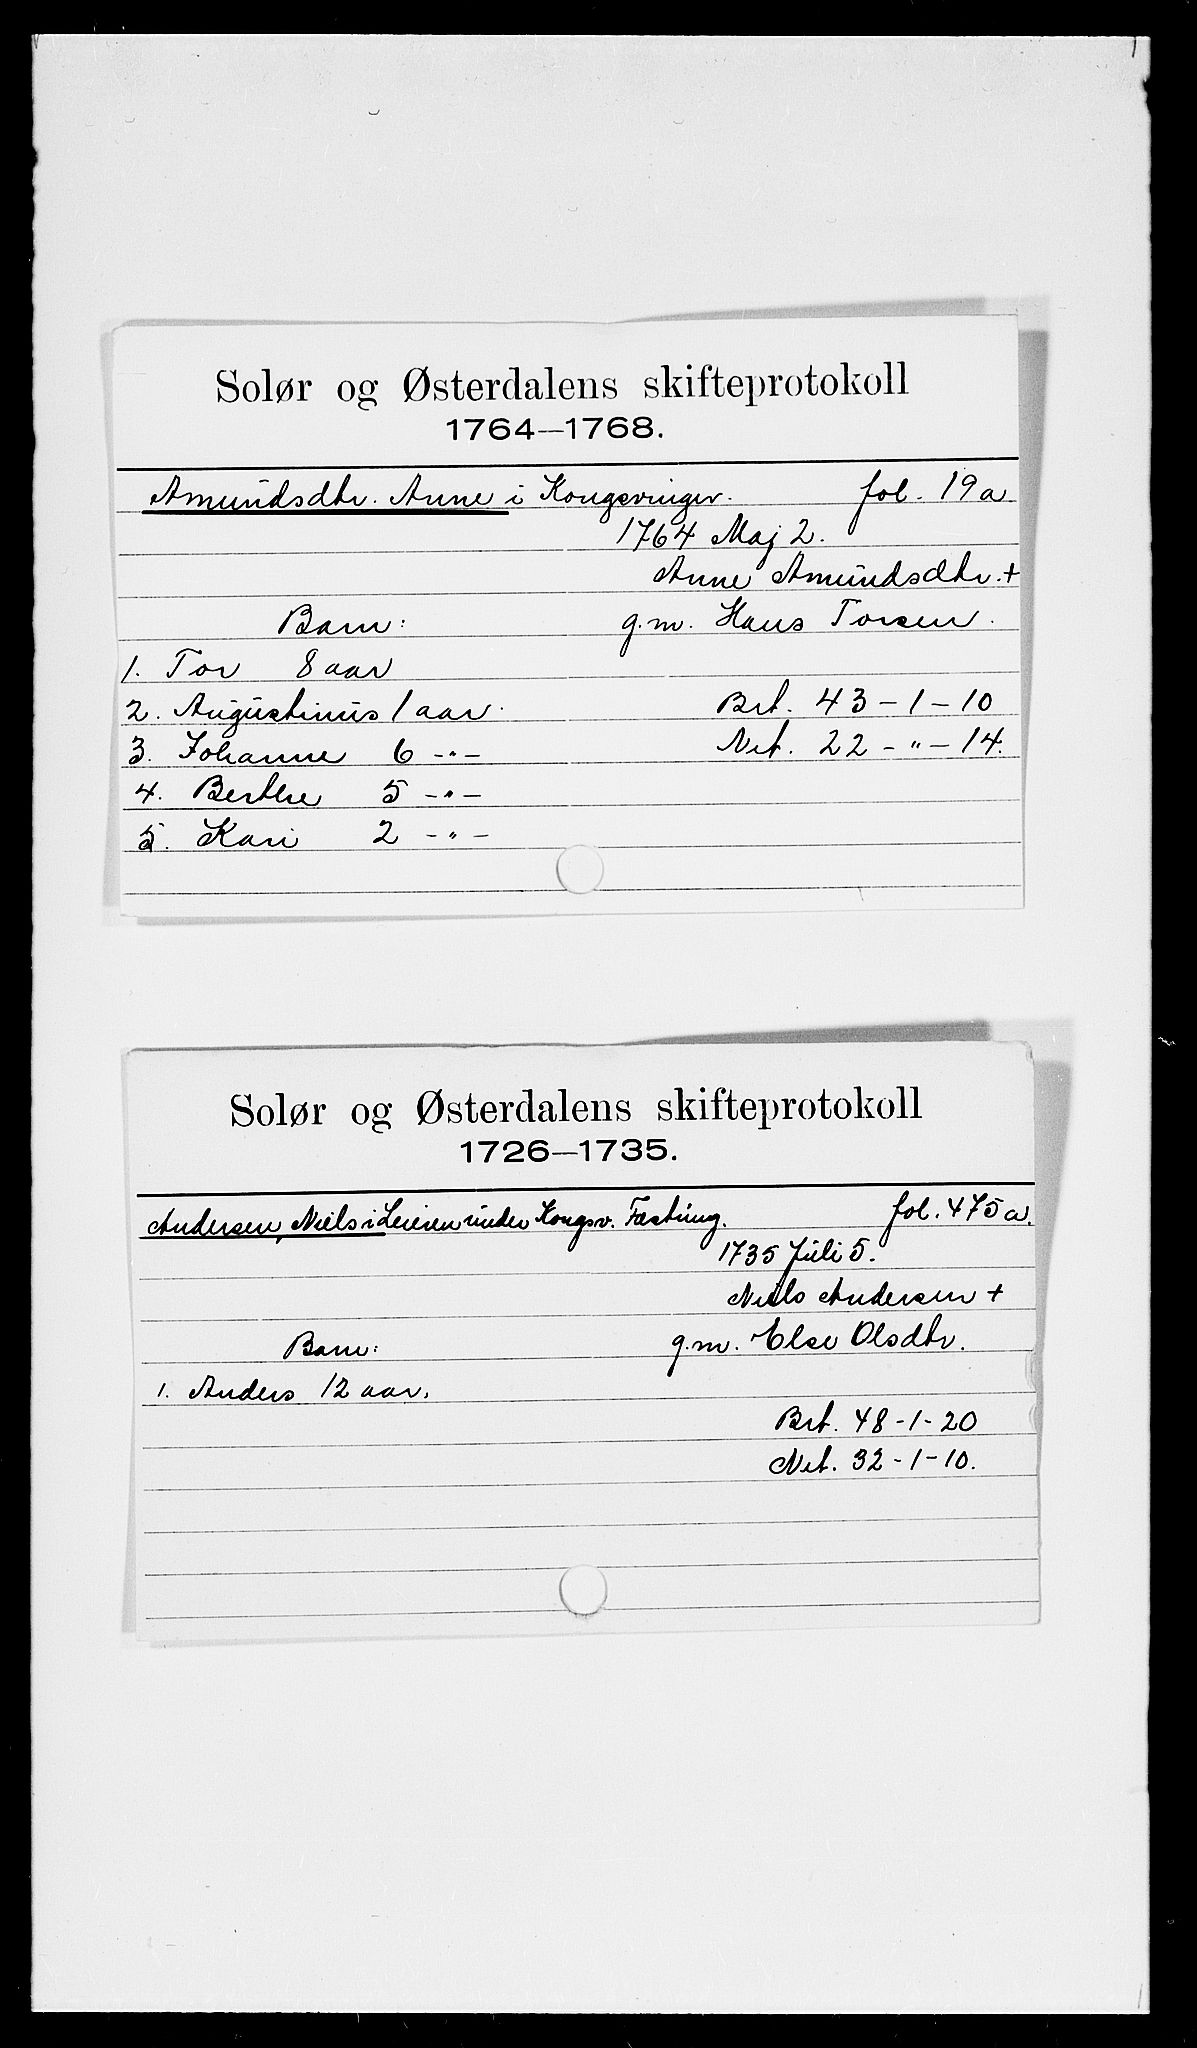 Solør og Østerdalens skifteprotokoll
1764—1768.
Amundsdtr. Anne i Kongsvinger. fol. 19a
1764 Maj 2.
Anne Amundsdtr. +
Barn: g.m. Hans Torsen.
1. Tor 8 aar
2. Augustinus 1 aar. Brt. 43-1-10
3. Johanne 6 -"- Net. 22-"-14.
4. Berthe 5 -"-
5. Kari 2 -"-
Solør og Østerdalens skifteprotokoll
1726—1735.
Andersen, Niels i Leieren under Kongsv. Fæstning. fol. 475a.
1735 Juli 5.
Niels Andersen +
Barn: g.m. Else Olsdtr.
1. Anders 12 aar.
Brt. 48-1-20
Net. 32-1-10.